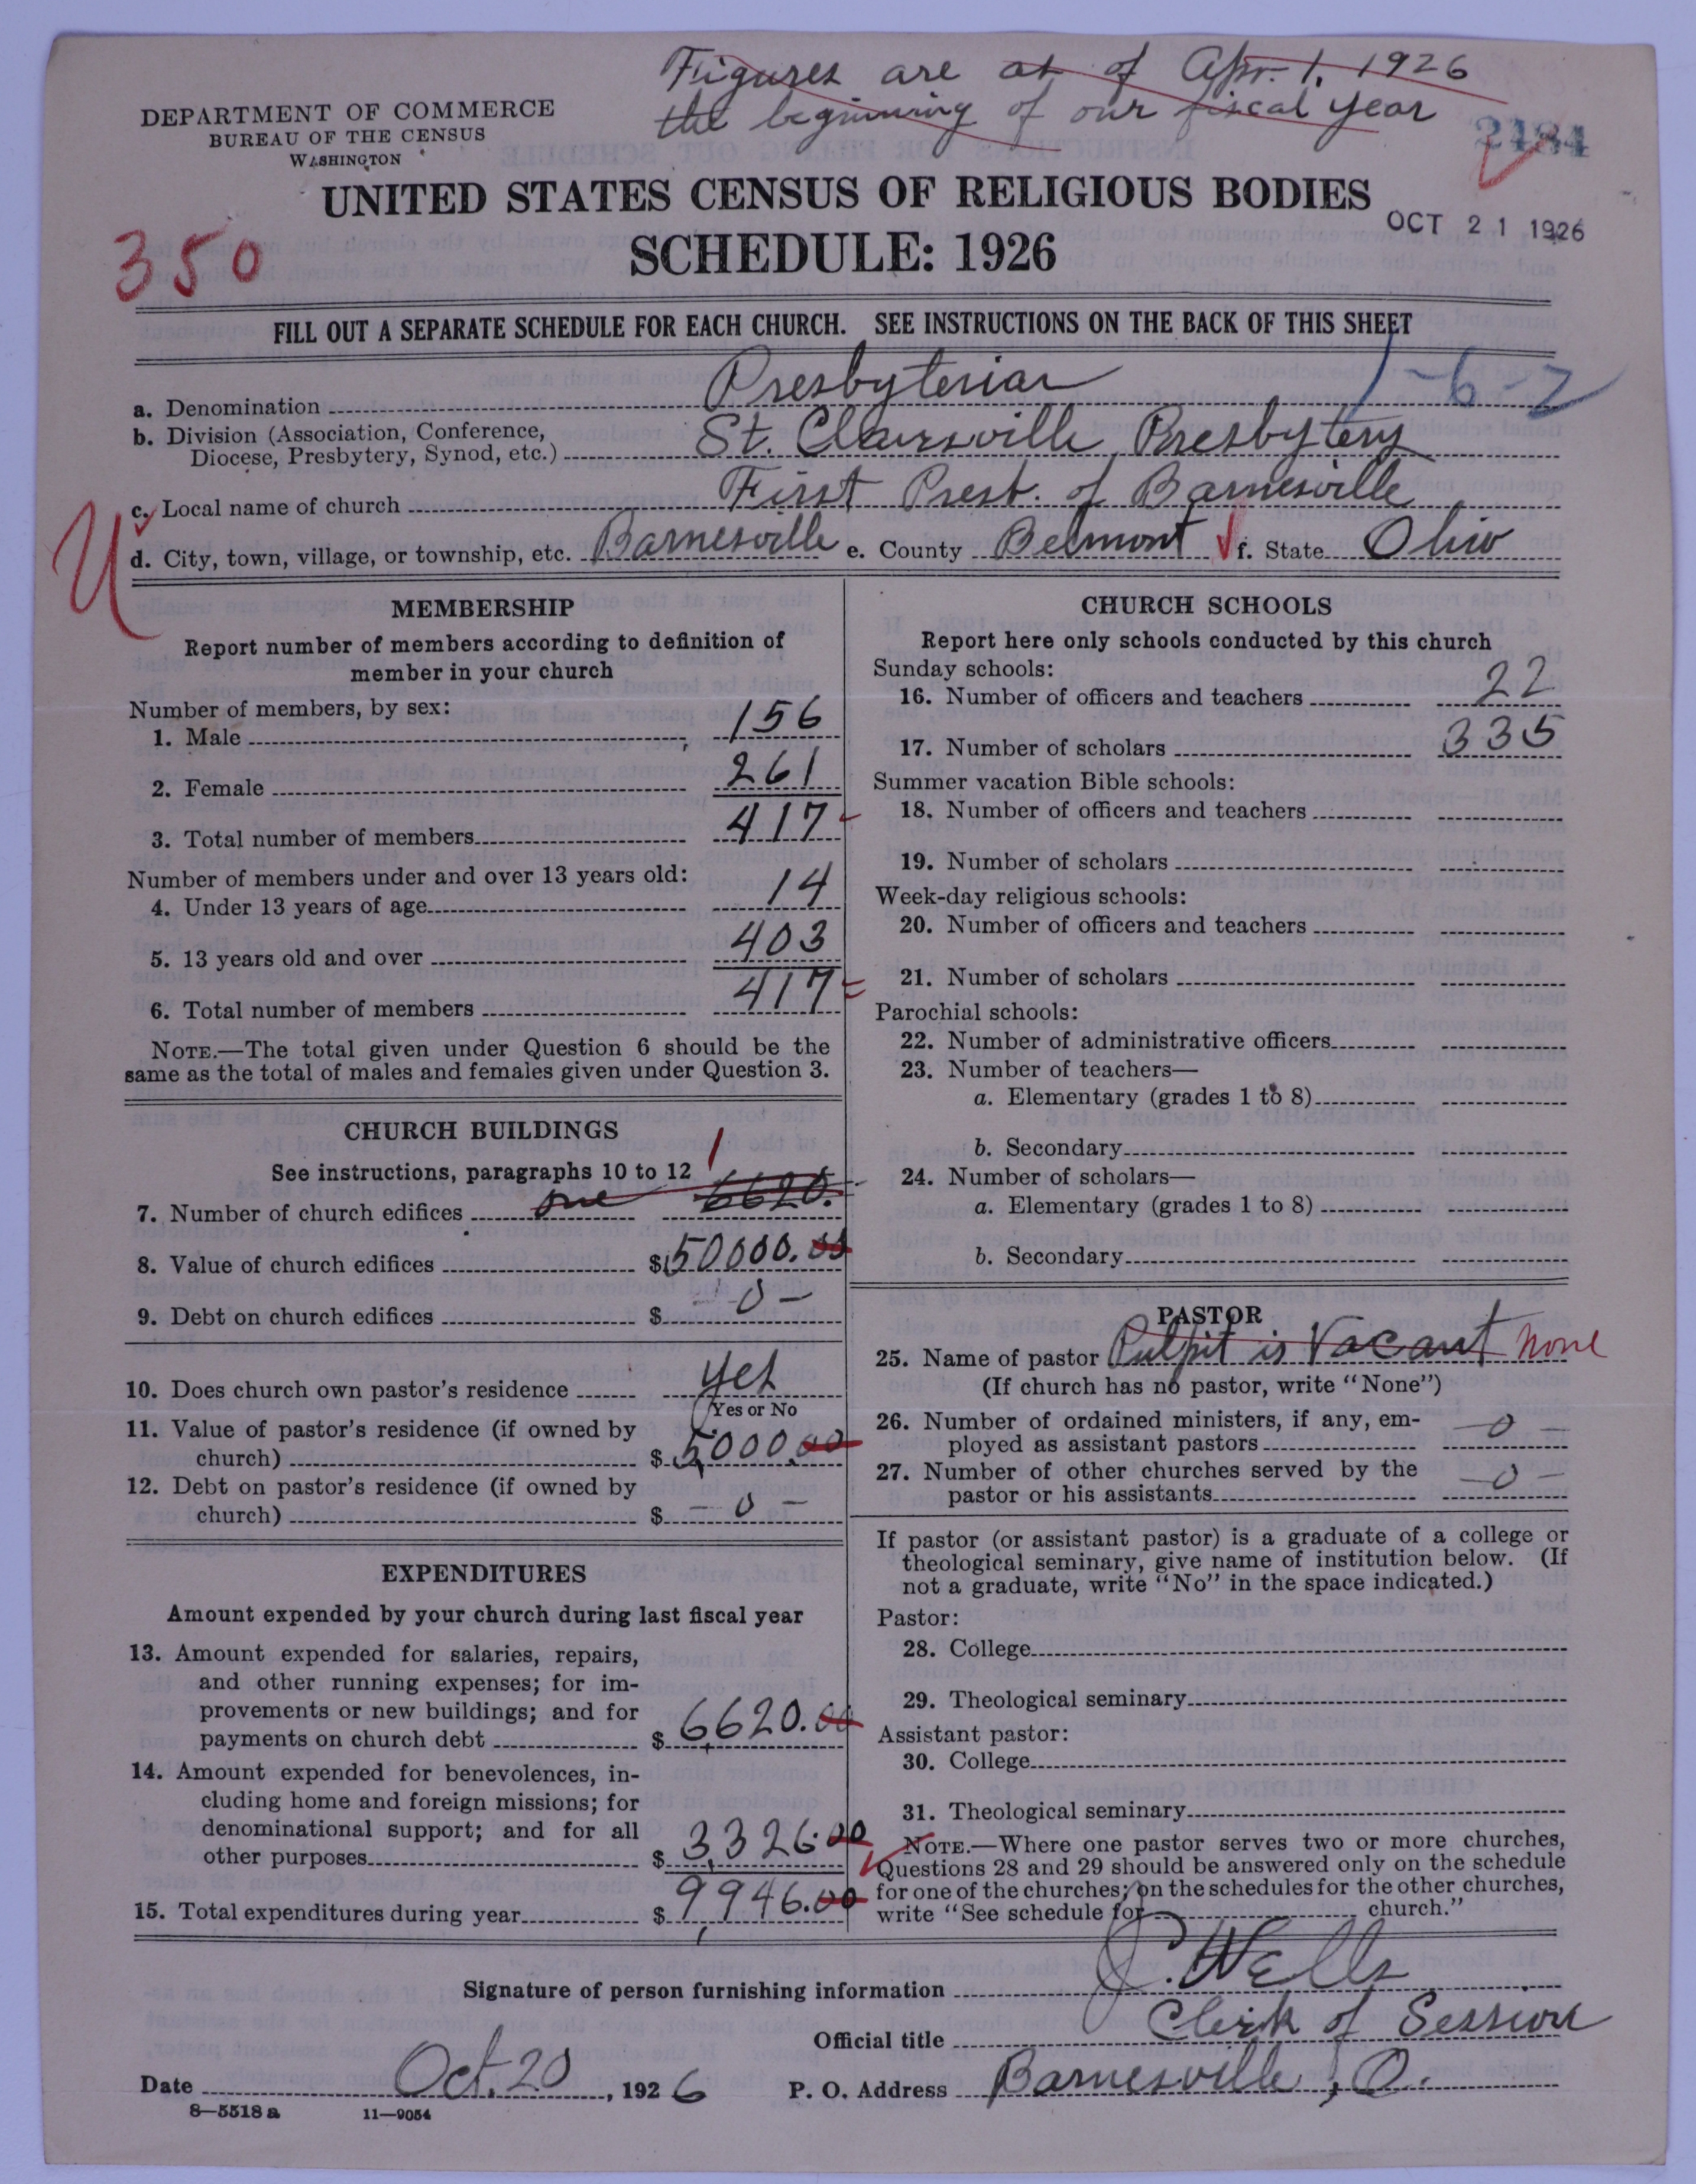 Figures are as of Apr. 1, 1926
the beginning of our fiscal year
DEPARTMENT OF COMMERCE
BUREAU OF THE CENSUS
WASHINGTON
2484
UNITED STATES CENSUS OF RELIGIOUS BODIES
OCT 21 1926
SCHEDULE: 1926
350
FILL OUT A SEPARATE SCHEDULE FOR EACH CHURCH. SEE INSTRUCTIONS ON THE BACK OF THIS SHEET
1-6-2
a. Denomination Presbyterian
b. Division (Association, Conference,
Diocese, Presbytery, Synod, etc.) St. Clairsville Presbytery
c. Local name of church First Presb. of Barnesville
d. City, town, village, or township, etc. Barnesville e. County Belmont f. State Ohio
U
MEMBERSHIP
Report number of members according to definition of
member in your church
Number of members, by sex:
1. Male 156
2. Female 261
3. Total number of members 417
Number of members under and over 13 years old:
4. Under 13 years of age 14
5. 13 years old and over 403
6. Total number of members 417
NOTE.—The total given under Question 6 should be the
same as the total of males and females given under Question 3.
CHURCH BUILDINGS
See instructions, paragraphs 10 to 12
1
7. Number of church edifices one 6620.
8. Value of church edifices $50000.00
9. Debt on church edifices $ -0-
10. Does church own pastor's residence yes
(Yes or No
11. Value of pastor's residence (if owned by
church) $5,000.00
12. Debt on pastor's residence (if owned by
church) $ -0-
EXPENDITURES
Amount expended by your church during last fiscal year
13. Amount expended for salaries, repairs,
and other running expenses; for im-
provements or new buildings; and for
payments on church debt $6,620.00
14. Amount expended for benevolences, in-
cluding home and foreign missions; for
denominational support; and for all
other purposes $3,326.00
15. Total expenditures during year $9,946.00
CHURCH SCHOOLS
Report here only schools conducted by this church
Sunday schools:
16. Number of officers and teachers 22
17. Number of scholars 335
Summer vacation Bible schools:
18. Number of officers and teachers
19. Number of scholars
Week-day religious schools:
20. Number of officers and teachers
21. Number of scholars
Parochial schools:
22. Number of administrative officers
23. Number of teachers—
a. Elementary (grades 1 to 8)
b. Secondary
24. Number of scholars—
a. Elementary (grades 1 to 8)
b. Secondary
PASTOR
25. Name of pastor Pulpit is Vacant None
(If church has no pastor, write "None")
26. Number of ordained ministers, if any, em-
ployed as assistant pastors -0-
27. Number of other churches served by the
pastor or his assistants -0-
If pastor (or assistant pastor) is a graduate of a college or
theological seminary, give name of institution below. (If
not a graduate, write "No" in the space indicated.)
Pastor:
28. College
29. Theological seminary
Assistant pastor:
30. College
31. Theological seminary
NOTE.—Where one pastor serves two or more churches,
Questions 28 and 29 should be answered only on the schedule
for one of the churches; on the schedules for the other churches,
write "See schedule for church."
Signature of person furnishing information J. C. Wells
Official title Clerk of Session
Date Oct. 20, 1926 P. O. Address Barnesville, O.
8—5518 a 11—9054